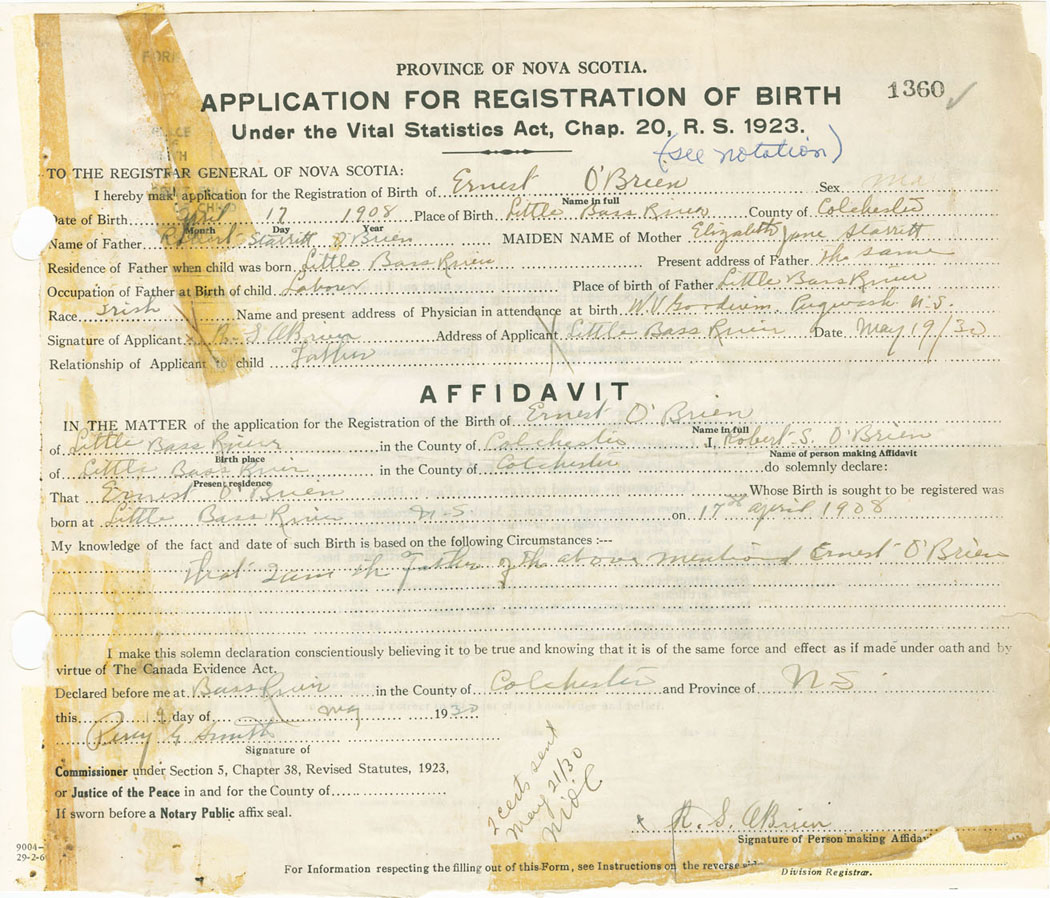 PROVINCE OF NOVA SCOTIA.
1360
APPLICATION FOR REGISTRATION OF BIRTH
Under the Vital Statistics Act, Chap. 20, R. S. 1923.
(see notation)
TO THE REGISTRAR GENERAL OF NOVA SCOTIA:
I hereby mak application for the Registration of Birth of Ernest O'Brien Sex
Name in full
Date of Birth April 17 1908 Place of Birth Little Bass River County of Colchester
Month Day Year
Name of Father Robert Starritt O'Brien MAIDEN NAME of Mother Elizabeth Jane Starritt
Residence of Father when child was born Little Bass River Present address of Father the same
Occupation of Father at Birth of child Laborer Place of birth of Father Little Bass River
Race Irish Name and present address of Physician in attendance at birth W V Goodwin Pugwash N.S.
Signature of Applicant x R S O'Brien Address of Applicant Little Bass River Date May 19/30
Relationship of Applicant to child Father
AFFIDAVIT
IN THE MATTER of the application for the Registration of the Birth of Ernest O'Brien
Name in full
of Little Bass River in the County of Colchester I, Robert S. O'Brien
Birth place Name of person making Affidavit
of Little Bass River in the County of Colchester do solemnly declare:
Present residence
That Ernest O'Brien Whose Birth is sought to be registered was
born at Little Bass River N-S on 17th April 1908
My knowledge of the fact and date of such Birth is based on the following Circumstances :---
that I am the Father of the above mentioned Ernest O'Brien
I make this solemn declaration conscientiously believing it to be true and knowing that it is of the same force and effect as if made under oath and by
virtue of The Canada Evidence Act.
Declared before me at Bass River in the County of Colchester and Province of N S
this 19 day of May 1930
Percy G Smith
Signature of
Commissioner under Section 5, Chapter 38, Revised Statutes, 1923,
or Justice of the Peace in and for the County of
If sworn before a Notary Public affix seal.
2 certs sent
May 21/30
x R. S. O'Brien
Signature of Person making Affida
9004-
29-2-6
For Information respecting the filling out of this Form, see Instructions on the reverse
Division Registrar.